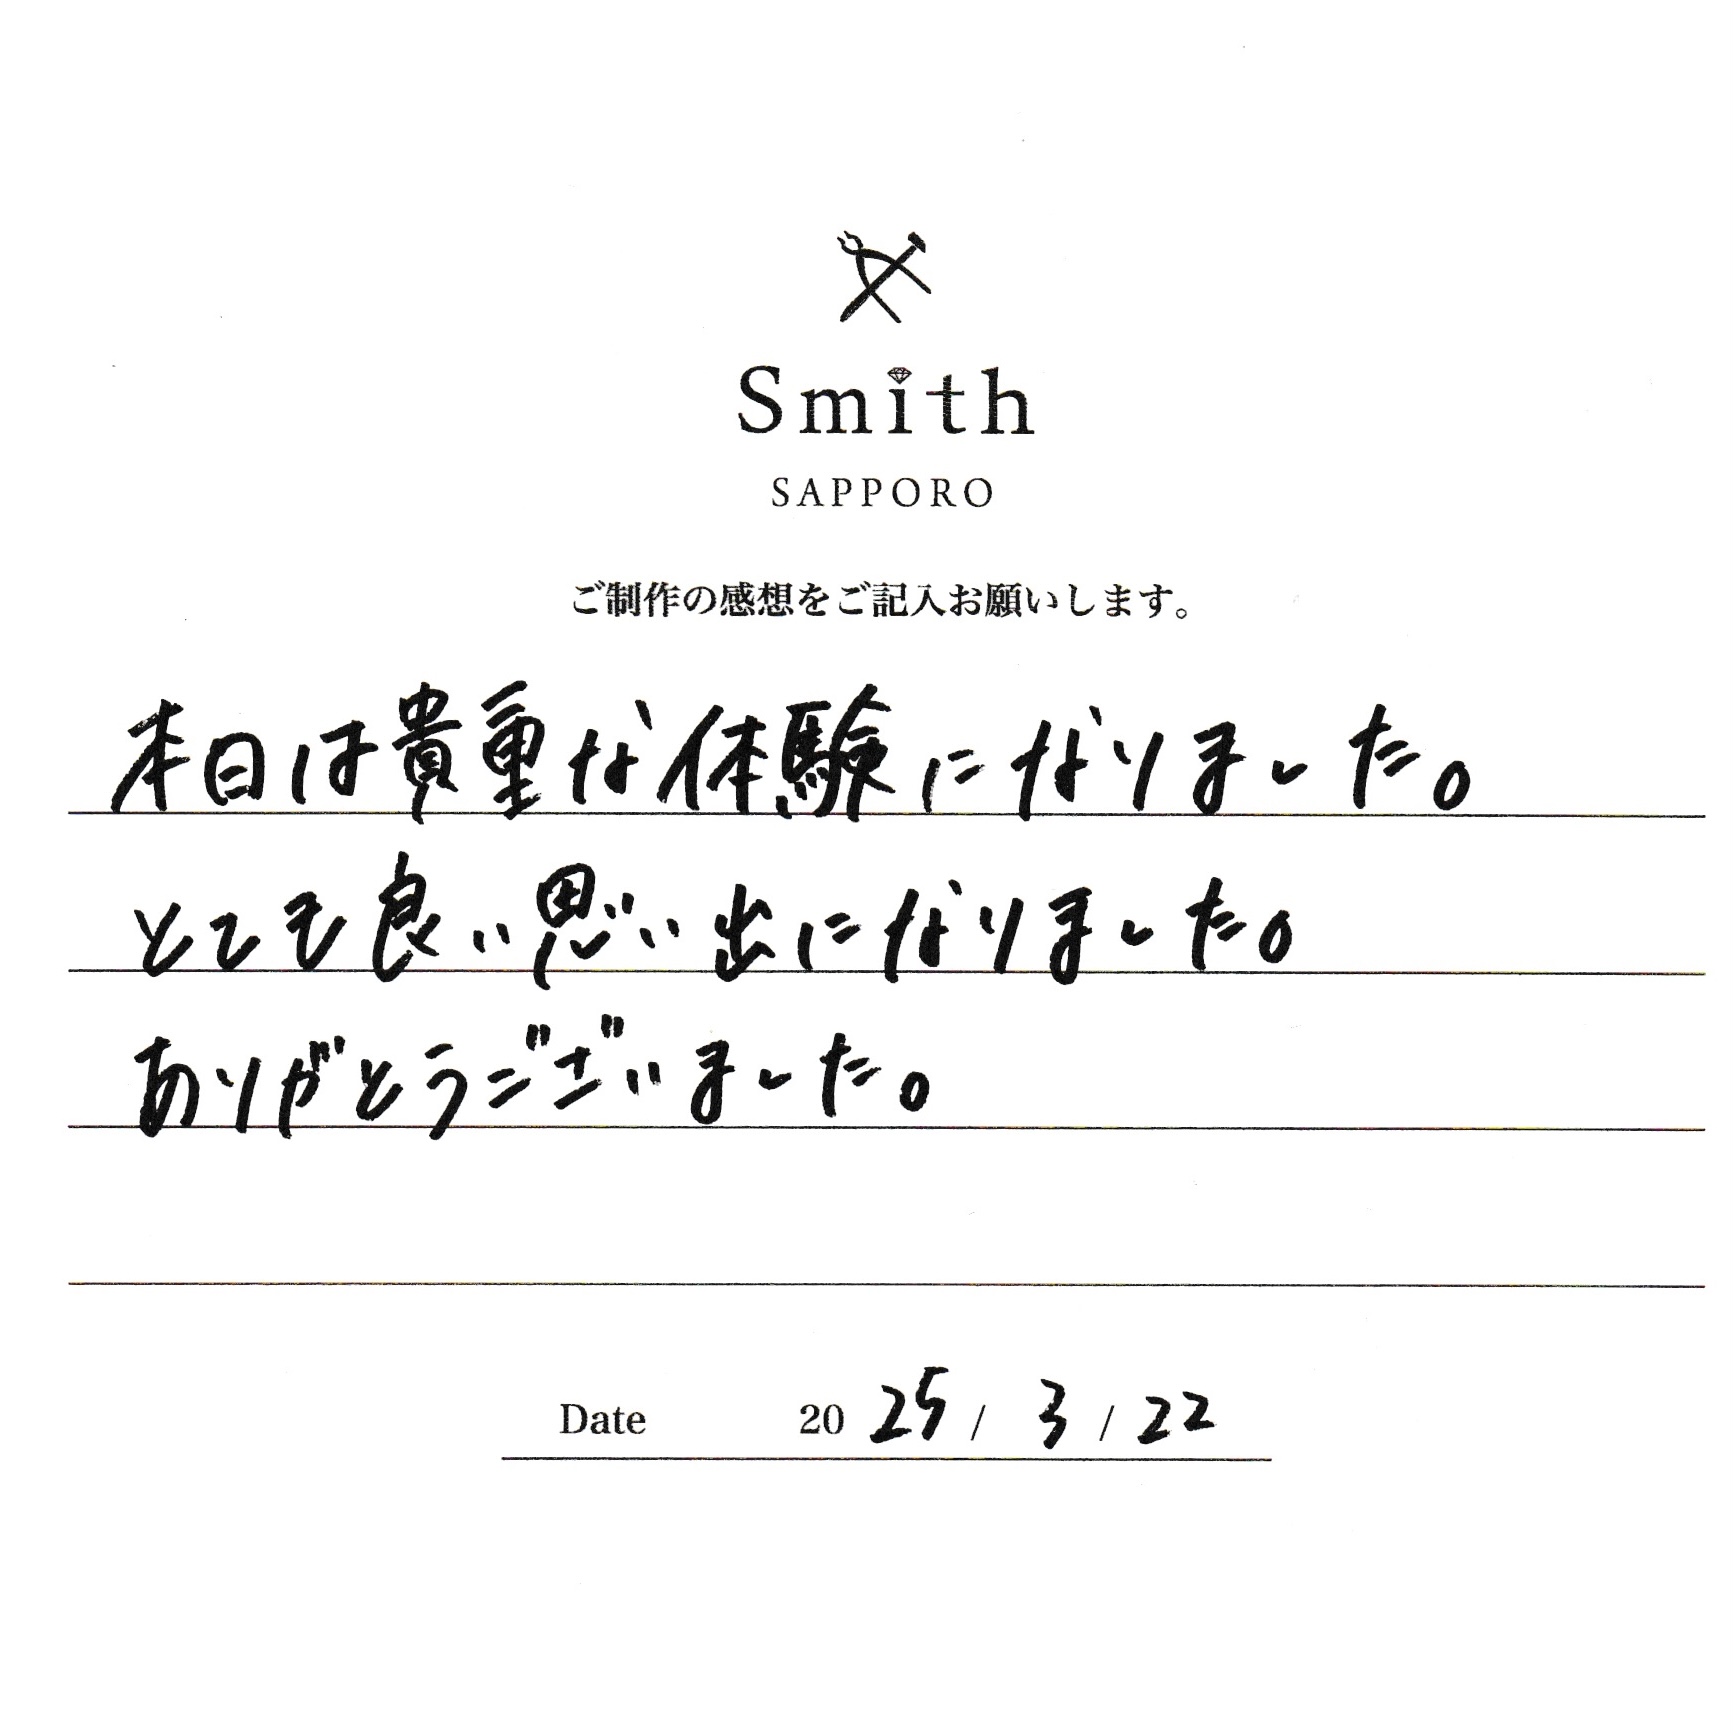 Smith
SAPPORO
ご制作の感想をご記入お願いします。
本日は貴重な体験になりました。
とても良い思い出になりました。
ありがとうございました。
Date 2025/3/22